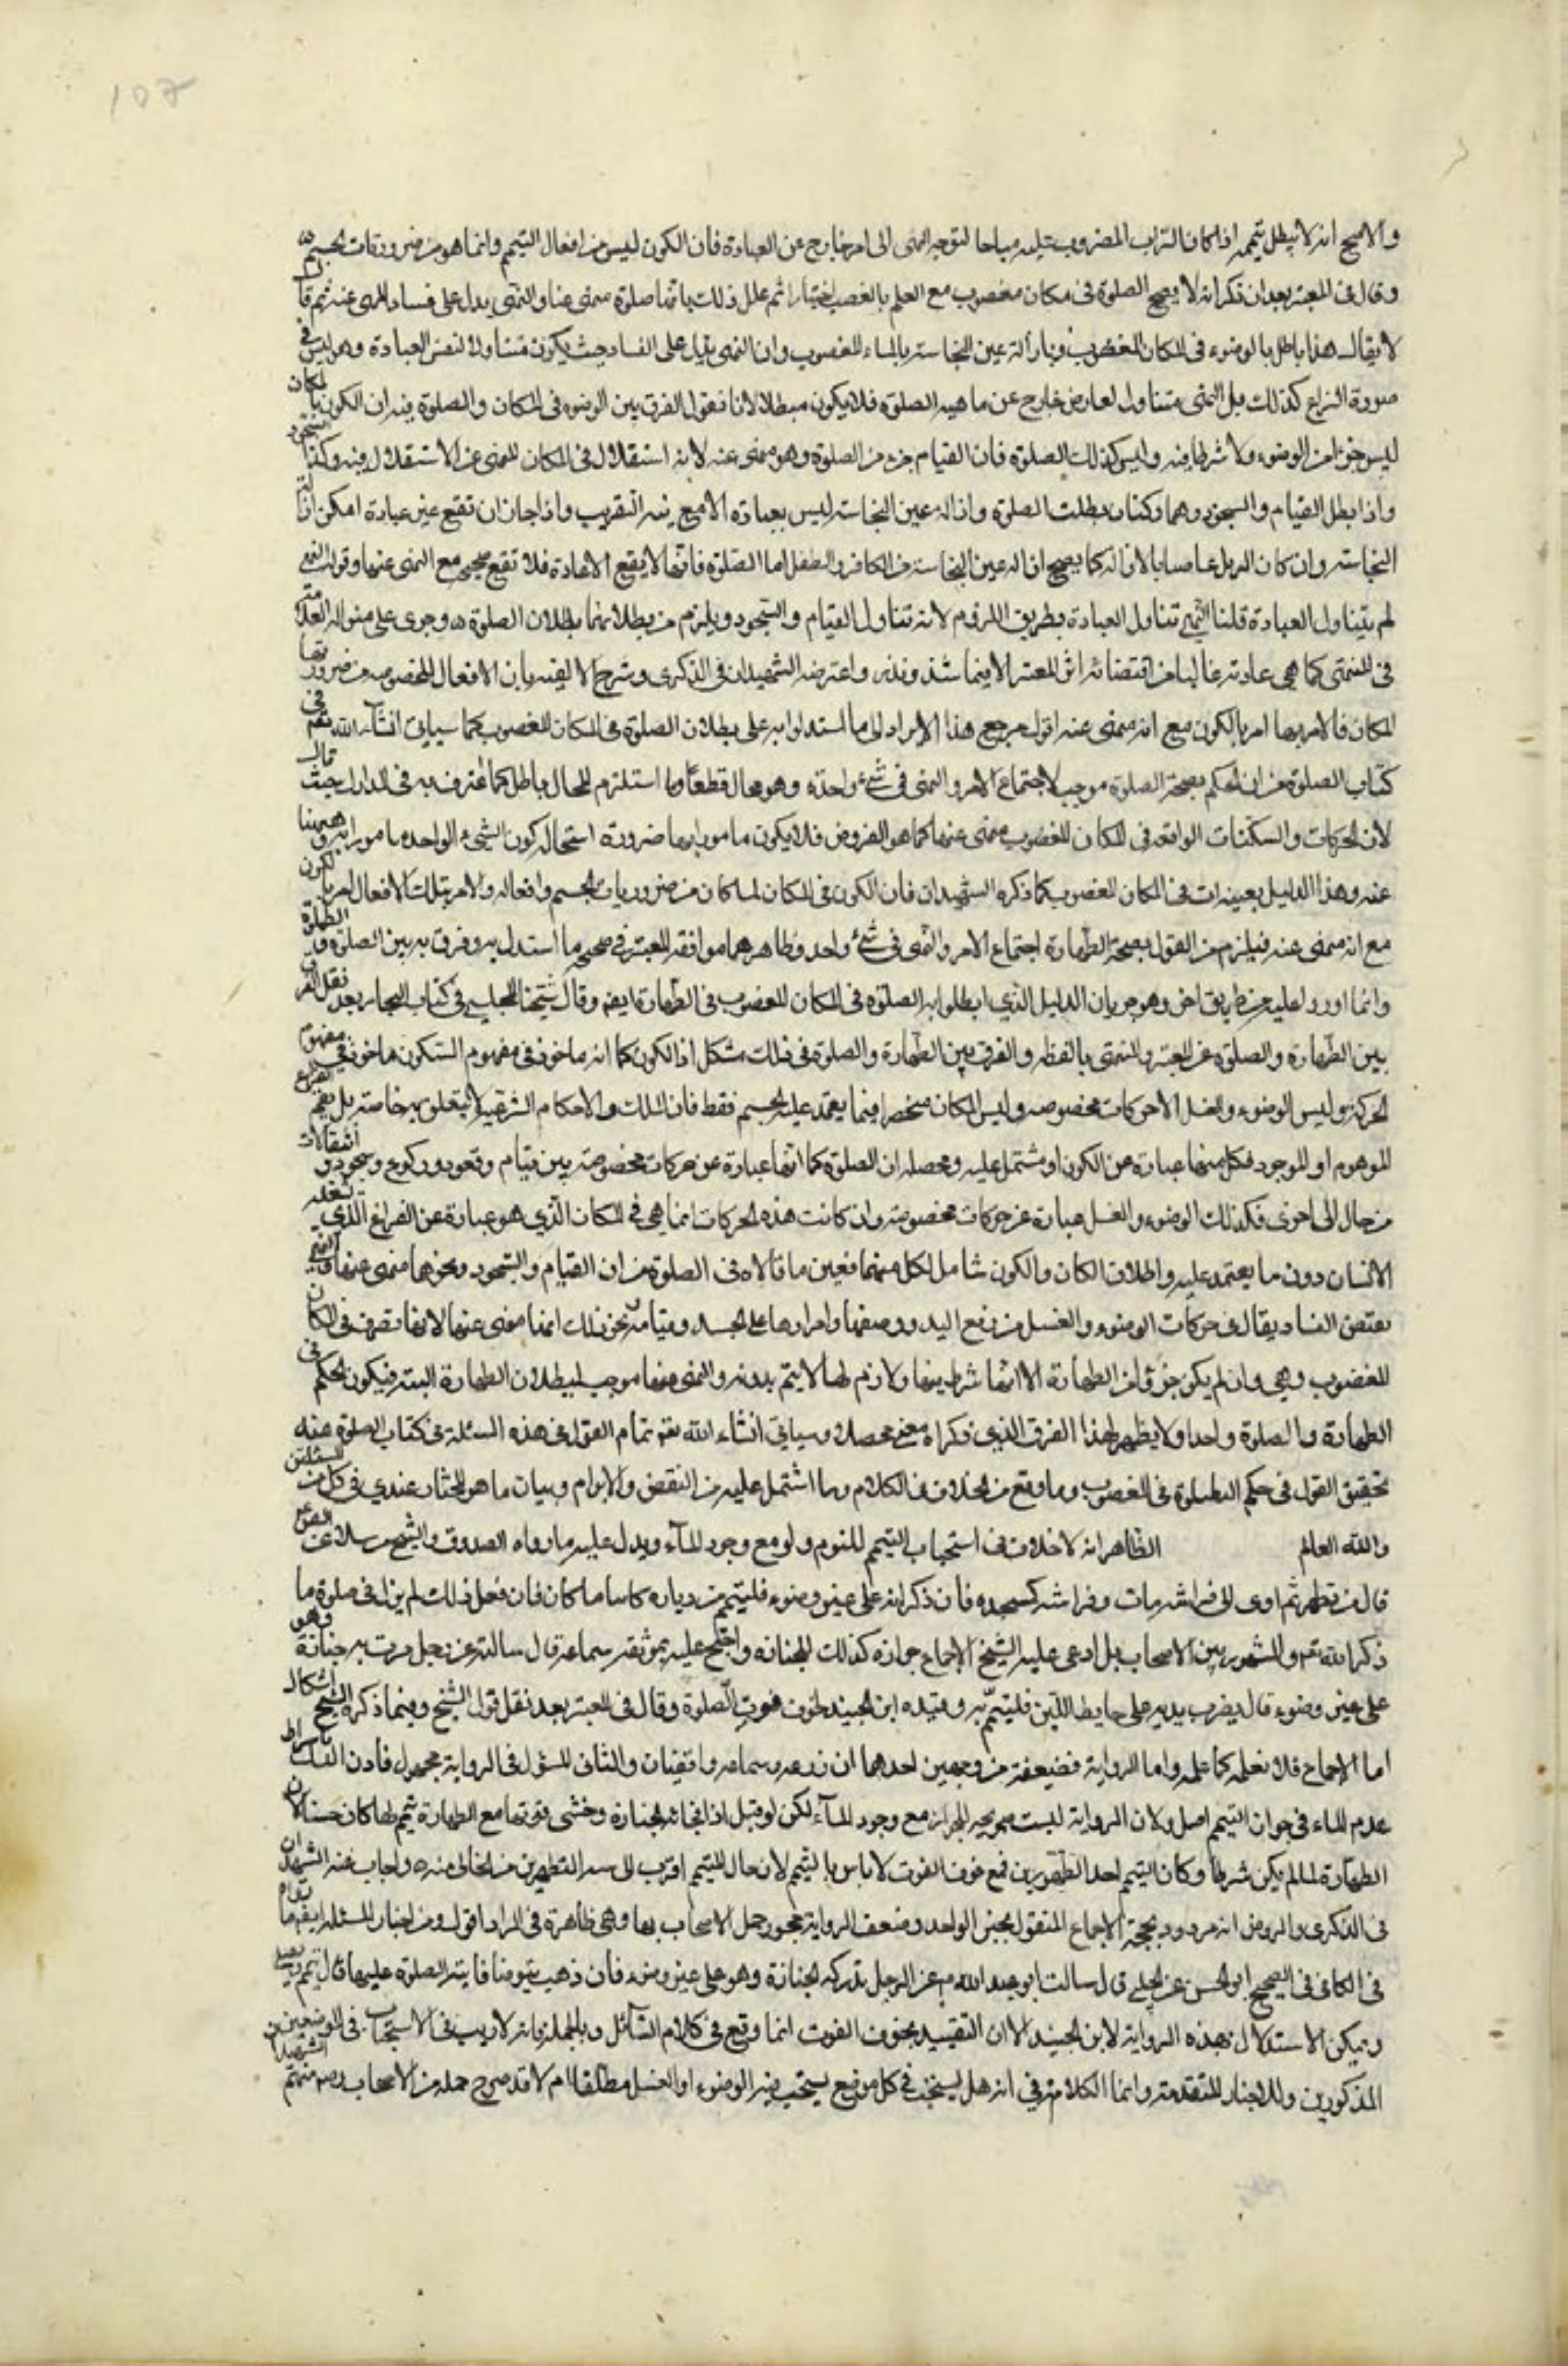 والاصح انه لا يبطل تيممه اذا كان التراب المضروب عليه مباحا لتوجه النهي الى امر خارج عن العبادة فان الكون ليس من افعال التيمم وانما هو من ضرورات الجسم
وقال في المعتبر بعد ان ذكر انه لا يصح الصلوة في مكان مغصوب مع العلم بالغصب اختيارا ثم علل ذلك بانها صلوة منهي عنها والنهي يدل على فساد المنهي عنه ثم قال
لا يقال هذا باطل بالوضوء في المكان المغصوب وبازالة عين النجاسة بالماء المغصوب وان النهي يدل على الفساد حيث يكون متناولا لنفس العبادة وهو ليس في
صورة النزاع كذلك بل النهي متناول لعارض خارج عن ماهية الصلوة فلا يكون مبطلا لانا نقول الفرق بين الوضوء في المكان والصلوة فيه ان الكون بالمكان
ليس جزءا من الوضوء ولا شرطا فيه وليس كذلك الصلوة فان القيام جزء من الصلوة وهو منهي عنه لانه استقلال في المكان المنهي عن الاستقلال فيه وكذا السجود
واذا بطل القيام والسجود وهما ركنان بطلت الصلوة وازالة عين النجاسة ليس بعبادة الا مع نية التقريب واذا جاز ان تقع غير عبادة امكن ازالة
النجاسة وان كان المزيل عاصيا بالازالة كما يصح ازالة عين النجاسة من الكافر والطفل اما الصلوة فانها لا يقع الا عبادة فلا تقع صحيح مع النهي عنها وقولك النهي
لم يتناول العبادة قلنا النهي تناول العبادة بطريق اللزوم لانه تناول القيام والسجود ويلزم من بطلانهما بطلان الصلوة ه وجرى على منواله العلامة
في المنتهى كما هي عادته غالبا من اقتضائه اثر المعتبر الا فيما شذ وندر واعترضه الشهيدان في الذكرى وشرح الالفية بان الافعال المخصوصة من ضرورتها
المكان فالامر بها امر بالكون مع انه منهي عنه اقول مرجع هذا الايراد الى ما استدلوا به على بطلان الصلوة في المكان المغصوب كما سيأتي انشاء الله تعم في
كتاب الصلوة من ان الحكم بصحة الصلوة موجب لاجتماع الامر والنهي في شيء واحد وهو محال قطعا وما استلزم المحال باطل كما اعترف به في المدارك حيث قال
لان الحركات والسكنات الواقعة في المكان المغصوب منهي عنها كما هو المفروض فلا يكون مامورا بها ضرورة استحالة كون الشيء الواحد مامورا به ومنهيا
عنه وهذا الدليل بعينه ات في المكان المغصوب كما ذكره الشهيدان فان الكون في المكان لما كان من ضروريات الجسم وافعاله والامر بتلك الافعال امر بالكون
مع انه منهي عنه فيلزم من القول بصحة الطهارة اجتماع الامر والنهي في شيء واحد وظاهرهما موافقة المعتبر في صحة ما استدل به وفرق به بين الصلوة والطهارة
وانما اوردا عليه من طريق اخر وهو جريان الدليل الذي ابطلوا به الصلوة في المكان المغصوب في الطهارة ايضا وقال شيخنا المجلسي في كتاب البحار بعد نقل الفرق
بين الطهارة والصلوة عن المعتبر والمنتهى ما لفظه والفرق بين الطهارة والصلوة في ذلك مشكل اذ الكون كما انه ماخوذ في مفهوم السكون ماخوذ في مفهوم
الحركة وليس الوضوء والغسل الا حركات مخصوصه وليس المكان منحصرا فيما يعتمد عليه الجسم فقط فان الملك والاحكام الشرعية لا يتعلق به خاصة بل يعم الفراغ
الموهوم او الموجود فكل منهما عبارة عن الكون او مشتمل عليه ومحصله ان الصلوة كما انها عبارة عن حركات مخصوصة بين قيام وقعود وركوع وسجود وانتقالات
من حال الى اخرى فكذلك الوضوء والغسل عبارة عن حركات مخصوصة وان كانت هذه الحركات انما هي في المكان الذي هو عبارة عن الفراغ الذي يشغله
الانسان دون ما يعتمد عليه واطلاق المكان والكون شامل لكل منهما فعين ما قالاه في الصلوة من ان القيام والسجود ونحوهما منهي عنها والنهي
يقتضي الفساد يقال في حركات الوضوء والغسل من رفع اليد ووضعها وامرارها على الجسد وقيامه ونحو ذلك انها منهي عنها لانها تصرف في المكان
المغصوب وهي وان لم يكن جزءا من الطهارة الا انها شرط فيها ولازم لها لا يتم بدونه والنهي عنها موجب لبطلان الطهارة البتة فيكون الحكم في
الطهارة والصلوة واحدا ولا يظهر لهذا الفرق الذي ذكراه معنى محصلا وسيأتي انشاء الله تعم تمام القول في هذه المسئلة في كتاب الصلوة عند
تحقيق القول في حكم الصلوة في المغصوب وما وقع من الخلاف في الكلام وما اشتمل عليه من النقض والابرام وبيان ما هو المختار عندي في كل من المسئلتين
والله العالم الظاهر انه لا خلاف في استحباب التيمم للنوم ولو مع وجود الماء ويدل عليه ما رواه الصدوق والشيخ مرسلا عن الصادق ع
قال من تطهر ثم اوى الى فراشه بات وفراشه كمسجده فان ذكر انه على غير وضوء فليتيمم من دثاره كائنا ما كان فان فعل ذلك لم يزل في صلوة ما
ذكر الله تعم والمشهور بين الاصحاب بل ادعى عليه الشيخ الاجماع جوازه كذلك للجنازة واحتج عليه بموثقة سماعة قال سالته عن رجل مرت به جنازة وهو
على غير وضوء قال يضرب يديه على حايط اللبن فليتيمم به وقيده ابن الجنيد بخوف فوت الصلوة وقال في المعتبر بعد نقل قول الشيخ وفيما ذكره الشيخ اشكال
اما الاجماع فلا نعلمه كما علمه واما الرواية فضعيفة من وجهين احدهما ان زرعه وسماعه واقفيان والثاني المسؤل في الرواية مجهول فاذن التمسك باشتراط
عدم الماء في جواز التيمم اصل ولان الرواية ليست صريحة الجواز مع وجود الماء لكن لو قيل اذا فجأته الجنازة وخشي فوتها مع الطهارة تيمم لها كان حسنا لان
الطهارة لما لم يكن شرطا وكان التيمم احد الطهورين فمع خوف الفوت لا باس بالتيمم لان حال المتيمم اقرب الى شبه المتطهرين من الخالي منه ه واجاب عنه الشهيدان
في الذكرى والروض انه مردود بحجة الاجماع المنقول بخبر الواحد وضعف الرواية مجبور بعمل الاصحاب بها وهي ظاهرة في المراد اقول ومن اخبار المسئلة ايضا ما رواه
في الكافي في الصحيح او الحسن عن الحلبي قال سالت ابو عبد الله ع عن الرجل تدركه الجنازة وهو على غير وضوء فان ذهب يتوضأ فاتته الصلوة عليها قال يتيمم ويصلي
ويمكن الاستدلال بهذه الرواية لابن الجنيد الا ان التقييد بخوف الفوت انما وقع في كلام السائل وبالجملة فانه لا ريب في الاستحباب في الموضعين
المذكورين وللاخبار المتقدمة وانما الكلام في انه هل يستحب في كل موضع يستحب فيه الوضوء او الغسل مطلقا ام لا قد صرح جمله من الاصحاب ومنهم الشهيدان